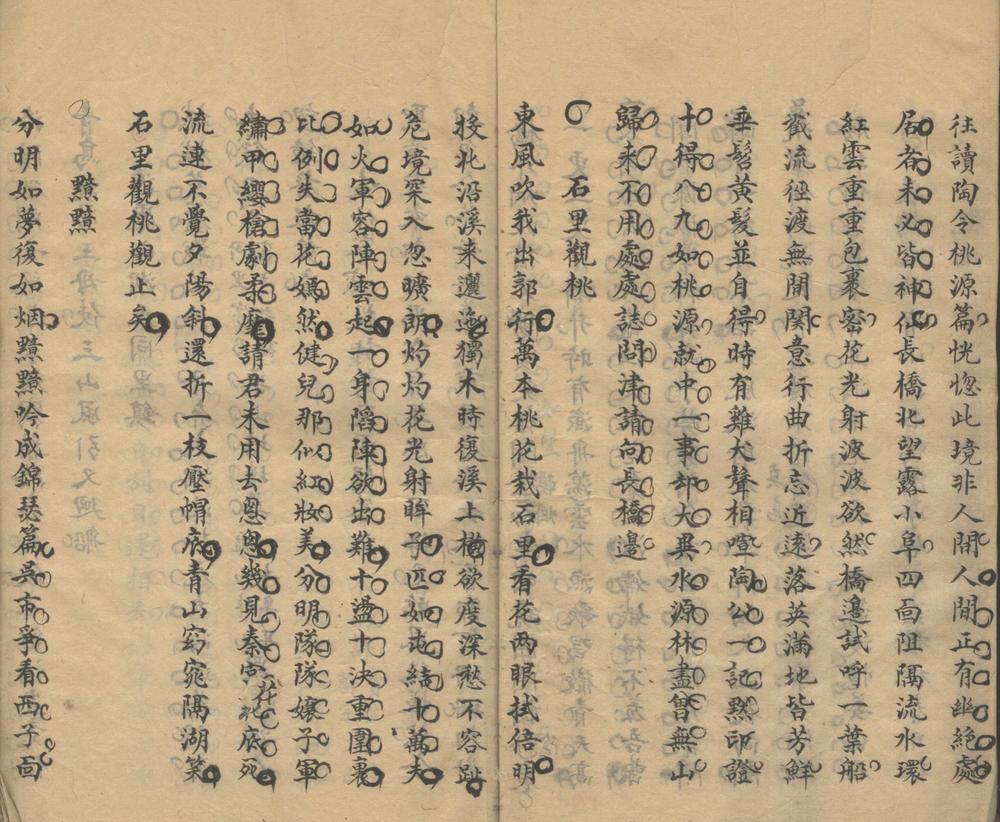 往讀陶令桃源篇恍惚此境非人間人間正有幽絕處
居者未必皆神仙長橋北望露小阜四面阻隔流水環
紅雲重重包裹密花光射波波欲然橋邊試呼一葉船
截流徑渡無間關意行曲折忘近遠落英滿地皆芳鮮
垂髫黃髮並自得時有雞犬聲相喧陶公一記默印證
十得八九如桃源就中一事却大異水源林盡曾無山
歸来不用處處誌問津請向長橋邊
石里觀桃
東風吹我出郭行萬本桃花栽石里看花两眼拭倍明
投北沿溪来邐迤獨木時復溪上橫欲度深愁不容趾
危境突入忽曠朗灼灼花光射眸子匹如屯結十萬夫
如火軍容陣雲起一身陷陣欲出難十盪十決重圍裏
比例失當花嫣然健兒那似紅妝美分明隊隊孃子軍
繡甲纓槍劇柔靡請君未用去恩恩幾見秦宮花底死
流連不覺夕陽斜還折一枝壓帽底青山窈窕隔湖笑
石里觀桃觀止矣
黟黟
分明如夢復如烟黟黟吟成錦瑟篇吳市爭看西子面